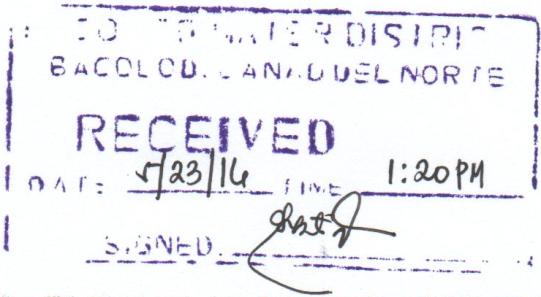 WATER DISTRICT
BACOLOD, LANAO DEL NORTE
RECEIVED
DATE 5/23/16 TIME 1:20PM
SIGNED